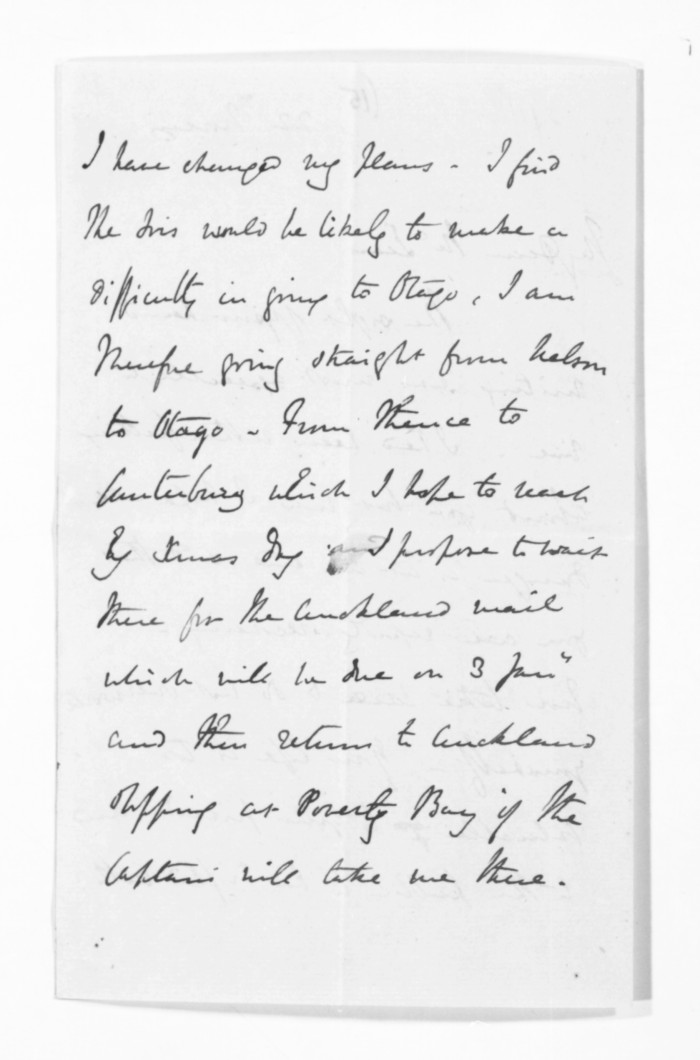 I have changed my plans - I find
the Iris would be likely to make a
difficulty in going to Otago, I am
therefore going straight from Nelson
to Otago - From thence to
Canterbury which I hope to reach
by Xmas Day and propose to wait
there for the Auckland mail
which will be due on 3 Jany
and then return to Auckland
stopping at Poverty Bay if the
Captain will take me there.